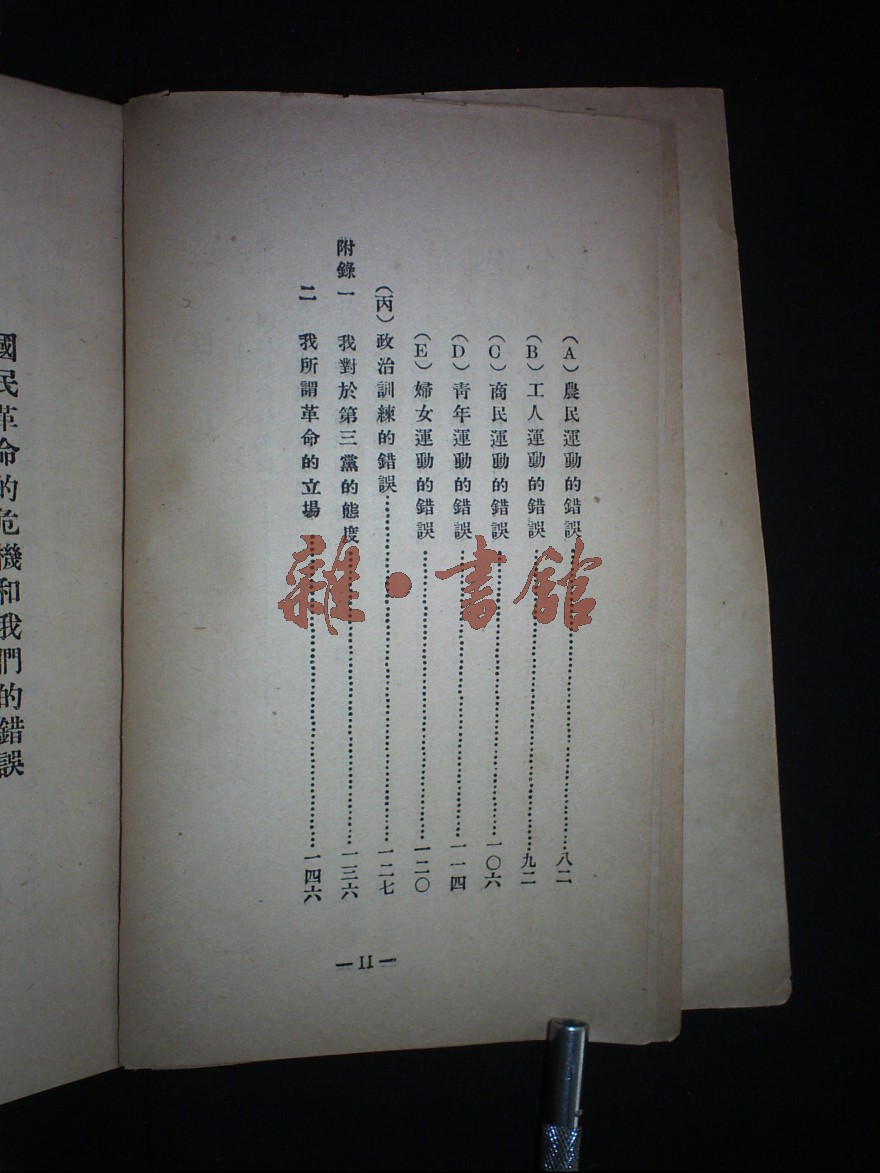 （A）農民運動的錯誤……八二
（B）工人運動的錯誤……九二
（C）商民運動的錯誤……一〇六
（D）靑年運動的錯誤……一一四
（E）婦女運動的錯誤……一二〇
（丙）政治訓練的錯誤……一二七
附錄一　我對於第三黨的態度……一三六
二　我所謂革命的立場……一四六
—11—
國民革命的危機和我們的錯誤
雜·書館